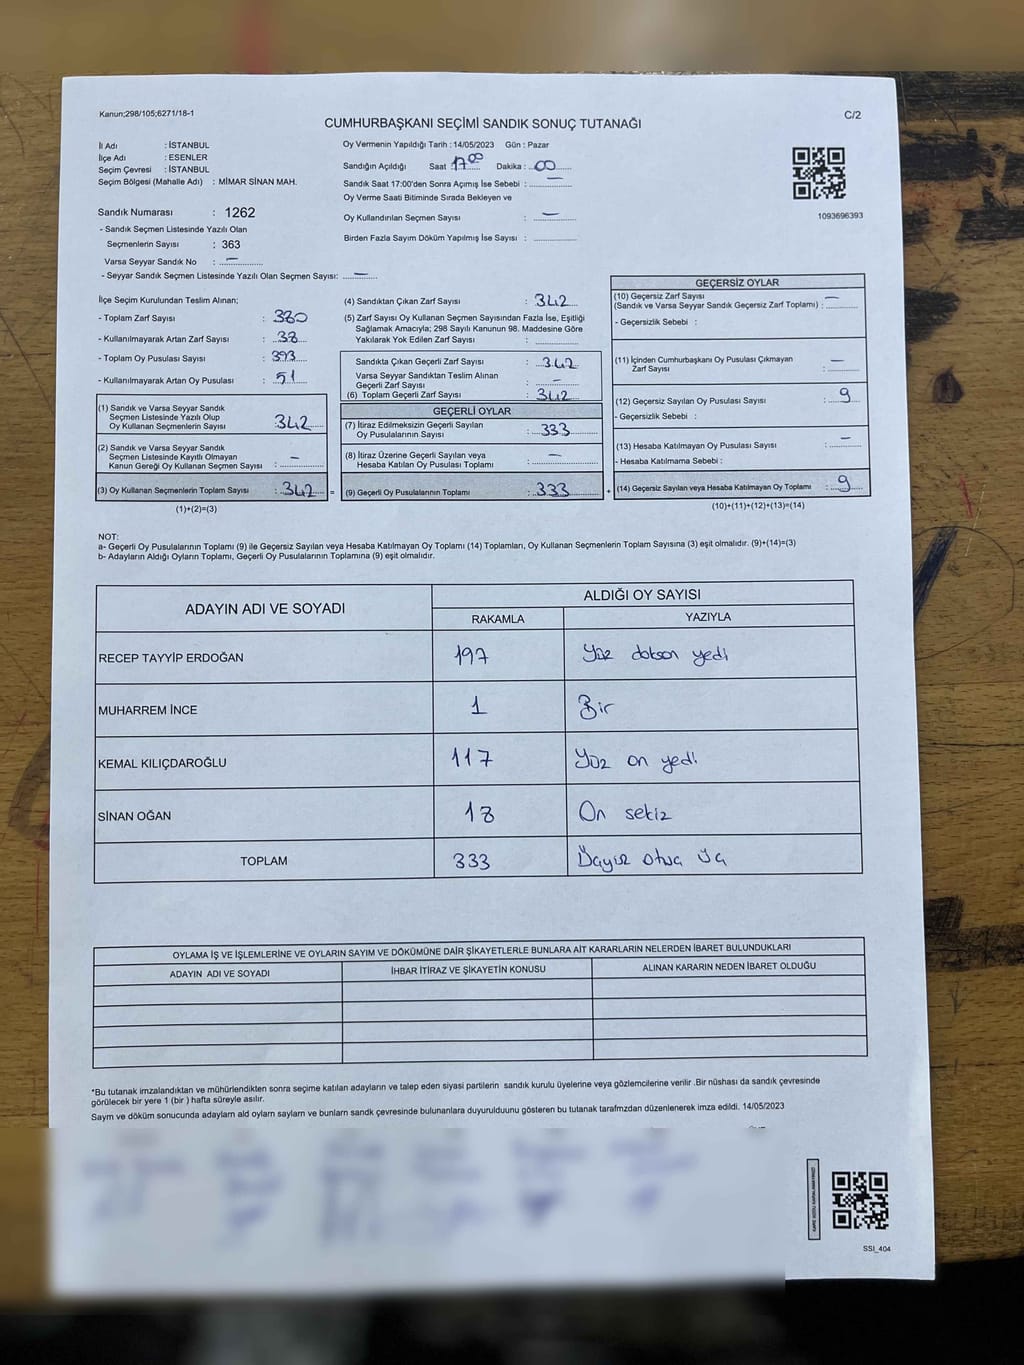 Kanun;298/105;6271/18-1
C/2
CUMHURBAŞKANI SEÇİMİ SANDIK SONUÇ TUTANAĞI
İl Adı : İSTANBUL
İlçe Adı : ESENLER
Seçim Çevresi : İSTANBUL
Seçim Bölgesi (Mahalle Adı) : MİMAR SİNAN MAH.
Sandık Numarası : 1262
- Sandık Seçmen Listesinde Yazılı Olan
Seçmenlerin Sayısı : 363
Varsa Seyyar Sandık No : —
- Seyyar Sandık Seçmen Listesinde Yazılı Olan Seçmen Sayısı: —
Oy Vermenin Yapıldığı Tarih : 14/05/2023 Gün : Pazar
Sandığın Açıldığı Saat 17 00 Dakika : 00
Sandık Saat 17:00'den Sonra Açımış İse Sebebi : —
Oy Verme Saati Bitiminde Sırada Bekleyen ve
Oy Kullandırılan Seçmen Sayısı : —
Birden Fazla Sayım Döküm Yapılmış İse Sayısı :
1093696393
İlçe Seçim Kurulundan Teslim Alınan;
- Toplam Zarf Sayısı : 380
- Kullanılmayarak Artan Zarf Sayısı : 38
- Toplam Oy Pusulası Sayısı : 393
- Kullanılmayarak Artan Oy Pusulası : 51
(1) Sandık ve Varsa Seyyar Sandık
Seçmen Listesinde Yazılı Olup
Oy Kullanan Seçmenlerin Sayısı : 342
(2) Sandık ve Varsa Seyyar Sandık
Seçmen Listesinde Kayıtlı Olmayan
Kanun Gereği Oy Kullanan Seçmen Sayısı : —
(3) Oy Kullanan Seçmenlerin Toplam Sayısı : 342 =
(1)+(2)=(3)
(4) Sandıktan Çıkan Zarf Sayısı : 342
(5) Zarf Sayısı Oy Kullanan Seçmen Sayısından Fazla İse, Eşitliği
Sağlamak Amacıyla; 298 Sayılı Kanunun 98. Maddesine Göre
Yakılarak Yok Edilen Zarf Sayısı :
Sandıkta Çıkan Geçerli Zarf Sayısı : 342
Varsa Seyyar Sandıktan Teslim Alınan
Geçerli Zarf Sayısı : —
(6) Toplam Geçerli Zarf Sayısı : 342
GEÇERLİ OYLAR
(7) İtiraz Edilmeksizin Geçerli Sayılan
Oy Pusulalarının Sayısı : 333
(8) İtiraz Üzerine Geçerli Sayılan veya
Hesaba Katılan Oy Pusulası Toplamı : —
(9) Geçerli Oy Pusulalarının Toplamı : 333 +
GEÇERSİZ OYLAR
(10) Geçersiz Zarf Sayısı
(Sandık ve Varsa Seyyar Sandık Geçersiz Zarf Toplamı) : —
- Geçersizlik Sebebi :
(11) İçinden Cumhurbaşkanı Oy Pusulası Çıkmayan
Zarf Sayısı : —
(12) Geçersiz Sayılan Oy Pusulası Sayısı : 9
- Geçersizlik Sebebi :
(13) Hesaba Katılmayan Oy Pusulası Sayısı : —
- Hesaba Katılmama Sebebi :
(14) Geçersiz Sayılan veya Hesaba Katılmayan Oy Toplamı : 9
(10)+(11)+(12)+(13)=(14)
NOT:
a- Geçerli Oy Pusulalarının Toplamı (9) ile Geçersiz Sayılan veya Hesaba Katılmayan Oy Toplamı (14) Toplamları, Oy Kullanan Seçmenlerin Toplam Sayısına (3) eşit olmalıdır. (9)+(14)=(3)
b- Adayların Aldığı Oyların Toplamı, Geçerli Oy Pusulalarının Toplamına (9) eşit olmalıdır.
ADAYIN ADI VE SOYADI ALDIĞI OY SAYISI
RAKAMLA YAZIYLA
RECEP TAYYİP ERDOĞAN 197 Yüz doksan yedi
MUHARREM İNCE 1 Bir
KEMAL KILIÇDAROĞLU 117 Yüz on yedi
SİNAN OĞAN 18 On sekiz
TOPLAM 333
OYLAMA İŞ VE İŞLEMLERİNE VE OYLARIN SAYIM VE DÖKÜMÜNE DAİR ŞİKAYETLERLE BUNLARA AİT KARARLARIN NELERDEN İBARET BULUNDUKLARI
ADAYIN ADI VE SOYADI İHBAR İTİRAZ VE ŞİKAYETİN KONUSU ALINAN KARARIN NEDEN İBARET OLDUĞU
*Bu tutanak imzalandıktan ve mühürlendikten sonra seçime katılan adayların ve talep eden siyasi partilerin sandık kurulu üyelerine veya gözlemcilerine verilir .Bir nüshası da sandık çevresinde
görülecek bir yere 1 (bir ) hafta süreyle asılır.
Saym ve döküm sonucunda adaylarn ald oylarn saylarn ve bunlarn sandk çevresinde bulunanlara duyurulduunu gösteren bu tutanak tarafmzdan düzenlenerek imza edildi. 14/05/2023
SSI_404